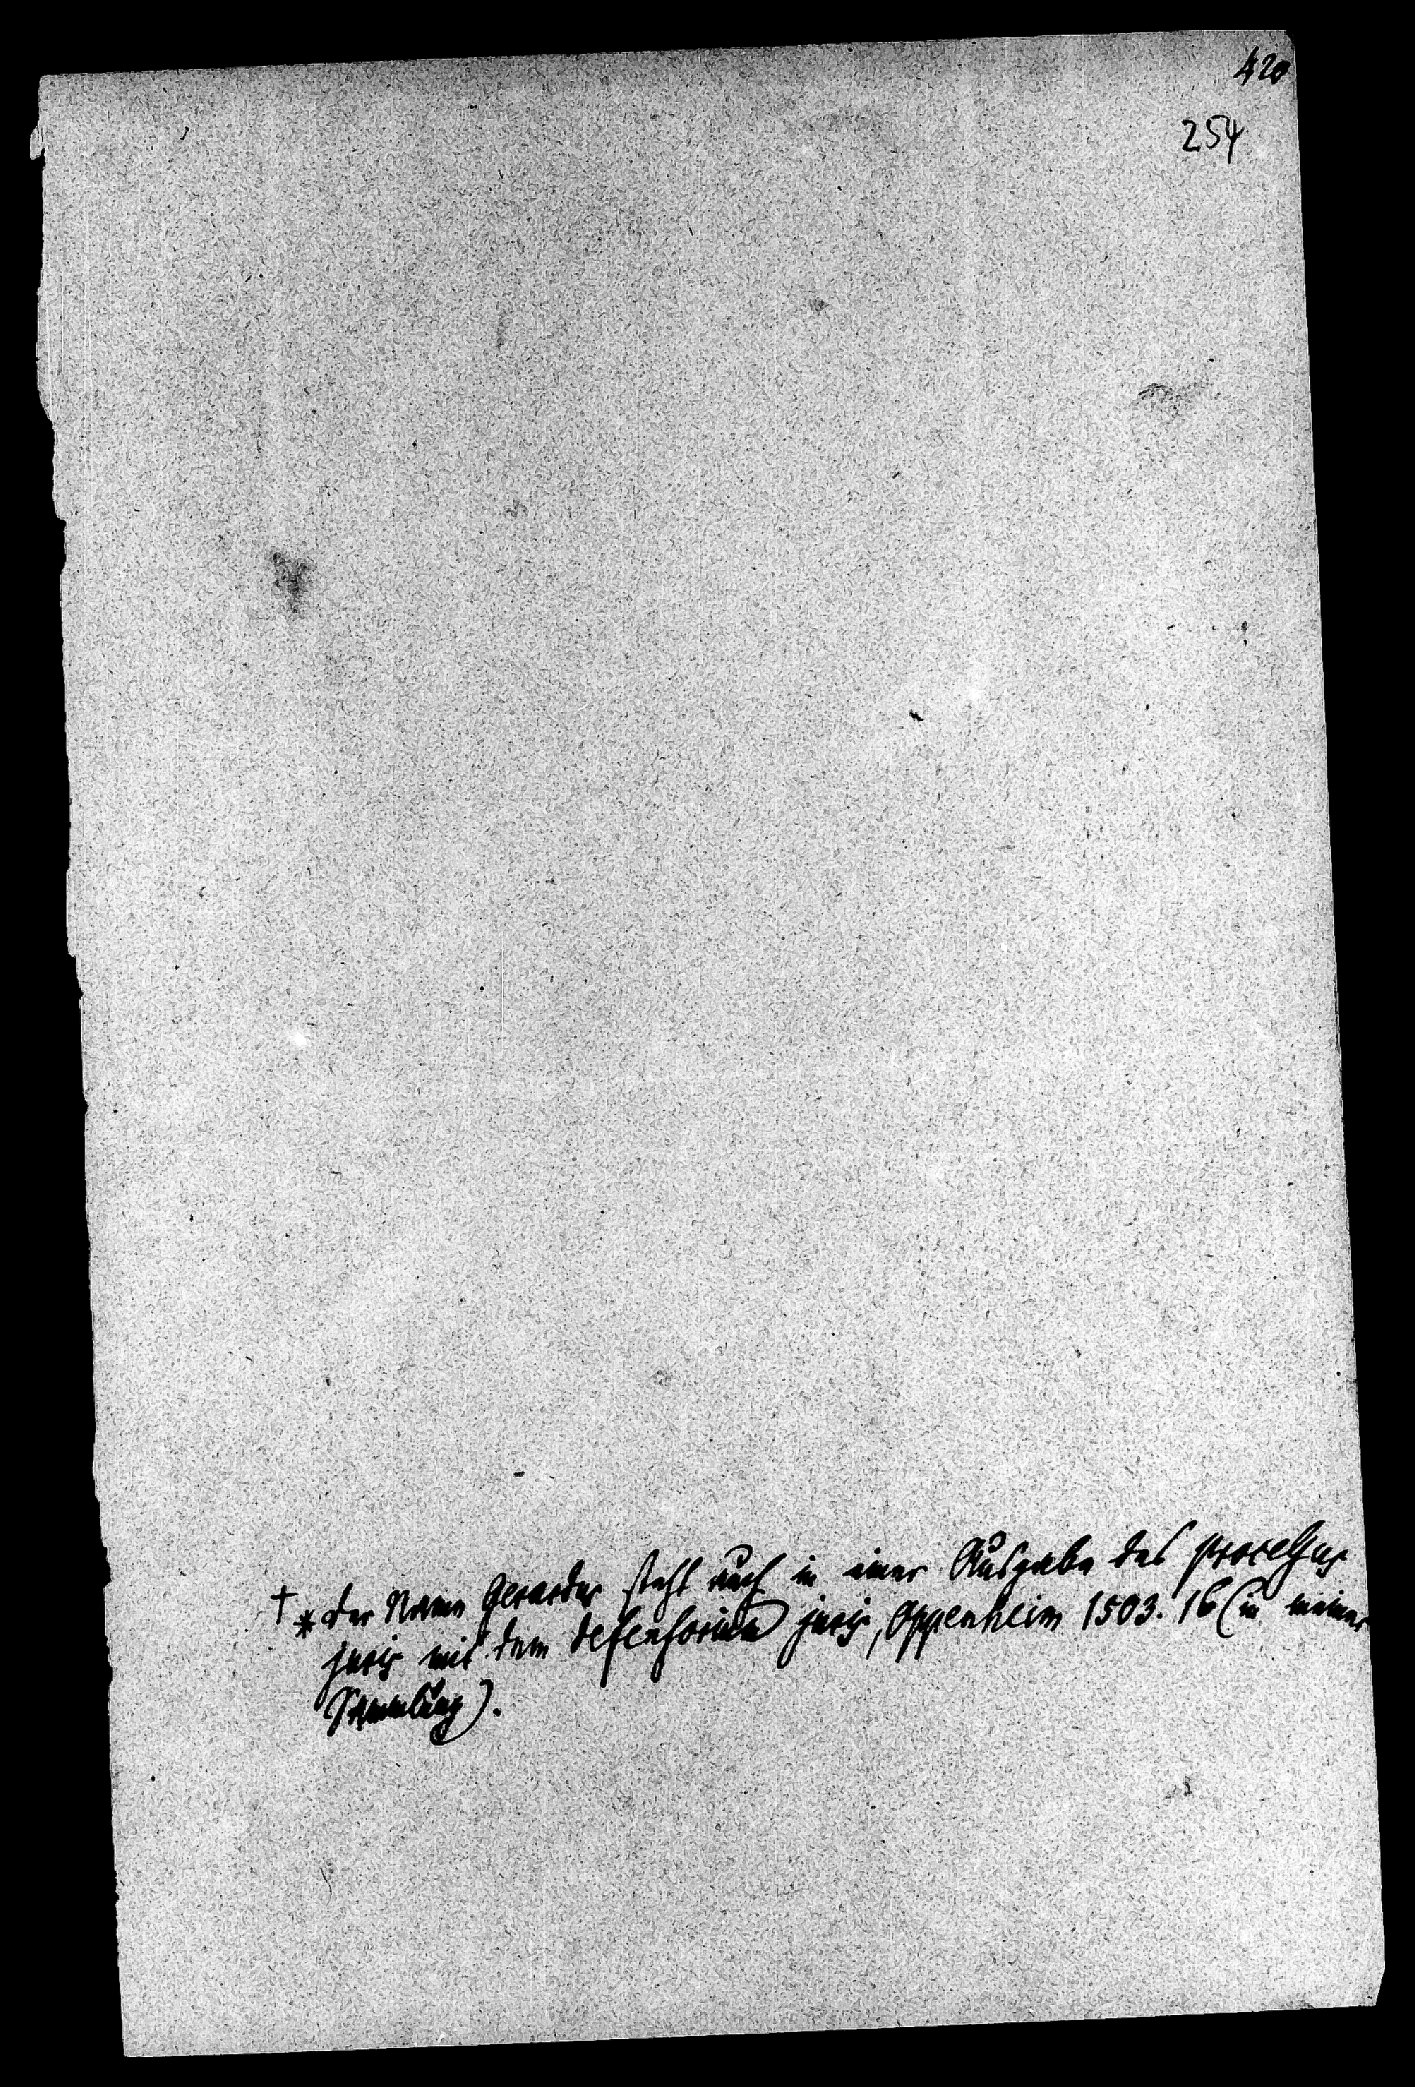 420
254
† * der Name Gerardus steht auch in einer Ausgabe des processus
juris mit dem defensorium juris, Oppenheim 1503. 16 (in meiner
Sammlung).